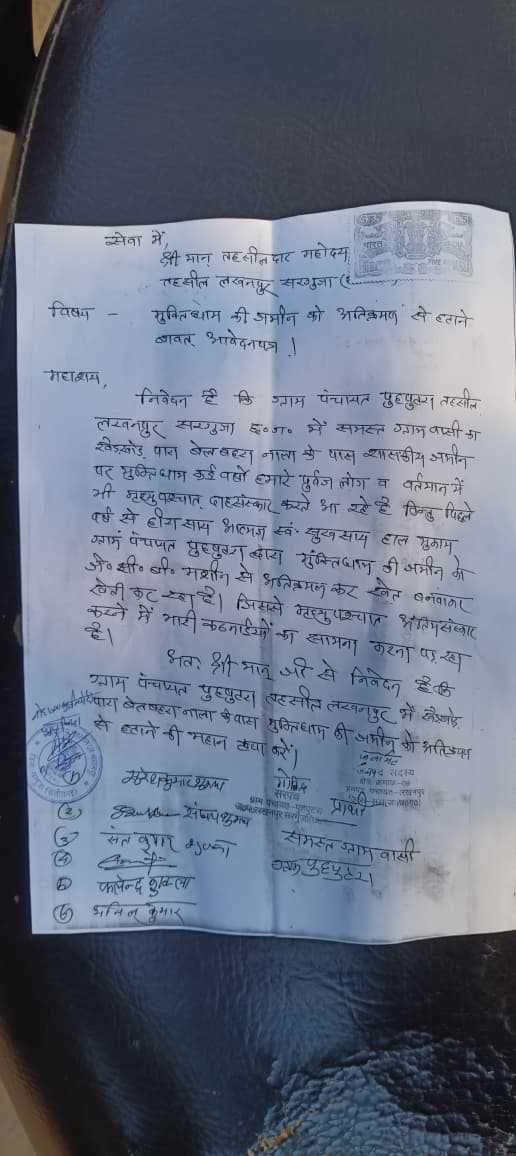 सेवा में,
श्री मान् तहसीलदार महोदय
तहसील लखनपुर सरगुजा
विषय - मुक्तिधाम की जमीन को अतिक्रमण से हटाने
बावत् आवेदनपत्र।
महाशय,
निवेदन है कि ग्राम पंचायत पुहपुटरा तहसील
लखनपुर सरगुजा छ.ग. में समस्त ग्राम वासी का
पारा बेलबहरा नाला के पास शासकीय जमीन
पर मुक्तिधाम कई वर्षो हमारे पुर्वज लोग व वर्तमान में
भी मृत्युपश्चात् दाहसंस्कार करते आ रहे है किन्तु पिछले
वर्ष से हीरासाय आत्मज स्व. सुखसाय हाल मुकाम
ग्राम पंचायत पुहपुटरा द्वारा मुक्तिधाम की जमीन के
जे.सी.बी. मशीन से अतिक्रमन कर खेत बनवाकर
खेती कर रहा है। जिससे मृत्युपश्चात् अंतिमसंस्कार
करने में भारी कठनाईयों का सामना करना पड़ रहा
है।
अतः श्री मान् जी से निवेदन है कि
ग्राम पंचायत पुहपुटरा तहसील लखनपुर में
पारा बेलबहरा नाला के पास मुक्तिधाम की जमीन को अतिक्रमण
से हटाने की महान कृपा करें।
जनपद सदस्य
जनपद पंचायत-लखनपुर
गोविंद
सरपंच
ग्राम पंचायत-पुहपुटरा
प्रार्थी
(2)
(3) संत कुमार
(4)
(5)
(6) अनिल कुमार
समस्त ग्राम वासी
ग्राम पुहपुटरा